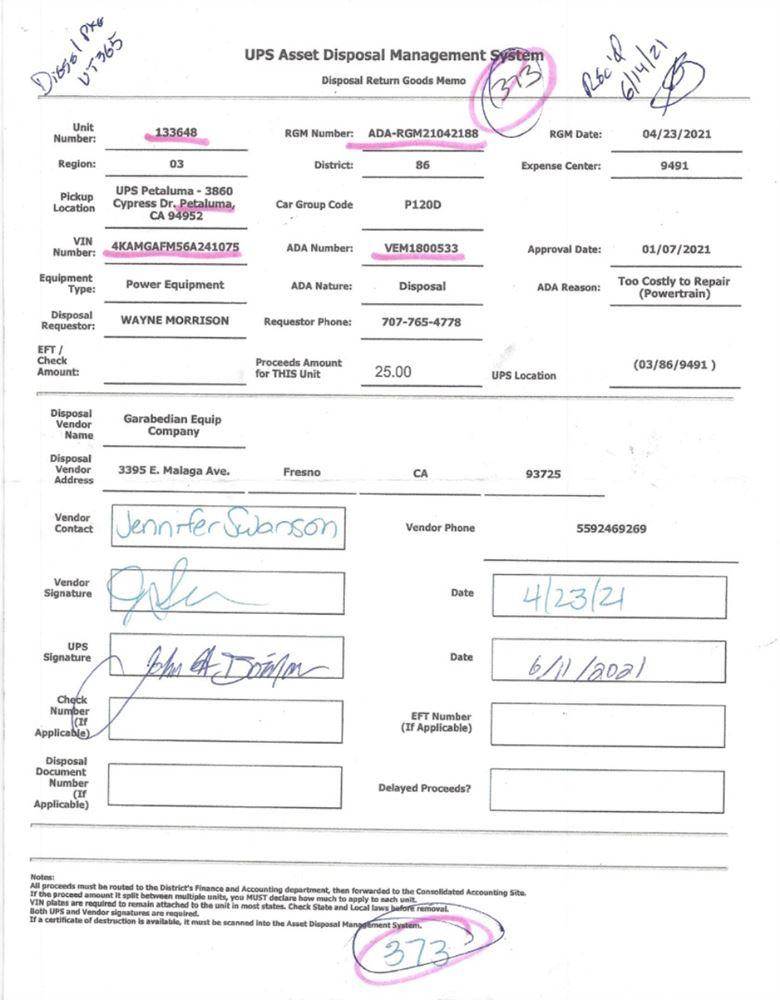 Diesel pkg
UT365
UPS Asset Disposal Management System
Disposal Return Goods Memo
373
Rec'd
6/14/21
Unit Number: 133648 RGM Number: ADA-RGM21042188 RGM Date: 04/23/2021
Region: 03 District: 86 Expense Center: 9491
Pickup Location UPS Petaluma - 3860 Cypress Dr. Petaluma, CA 94952 Car Group Code P120D
VIN Number: 4KAMGAFM56A241075 ADA Number: VEM1800533 Approval Date: 01/07/2021
Equipment Type: Power Equipment ADA Nature: Disposal ADA Reason: Too Costly to Repair (Powertrain)
Disposal Requestor: WAYNE MORRISON Requestor Phone: 707-765-4778
EFT / Check Amount: Proceeds Amount for THIS Unit 25.00 UPS Location (03/86/9491 )
Disposal Vendor Name Garabedian Equip Company
Disposal Vendor Address 3395 E. Malaga Ave. Fresno CA 93725
Vendor Contact Jennifer Swanson Vendor Phone 5592469269
Vendor Signature Date 4/23/21
UPS Signature Date 6/11/2021
Check Number (If Applicable) EFT Number (If Applicable)
Disposal Document Number (If Applicable) Delayed Proceeds?
Notes:
All proceeds must be routed to the District's Finance and Accounting department, then forwarded to the Consolidated Accounting Site.
If the proceed amount it split between multiple units, you MUST declare how much to apply to each unit.
VIN plates are required to remain attached to the unit in most states. Check State and Local laws before removal.
Both UPS and Vendor signatures are required.
If a certificate of destruction is available, it must be scanned into the Asset Disposal Management System.
373